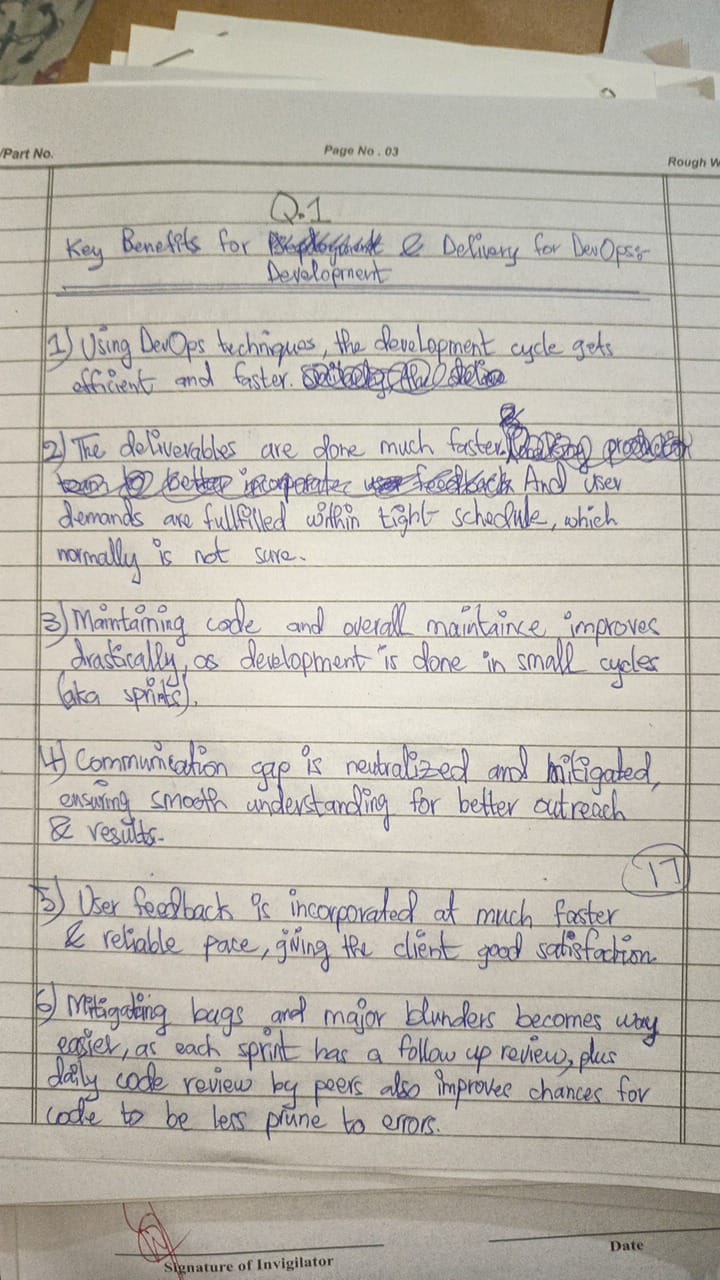 /Part No.
Page No . 03
Rough W
Q.1
Key Benefits for & Delivery for DevOps:-
Development
1) Using DevOps techniques, the development cycle gets
efficient and faster.
2) The deliverables are done much faster.
And user
demands are fullfilled within tight schedule, which
normally is not sure.
3) Maintaining code and overall maintaince improves
drastically, as development is done in small cycles
(aka sprints).
4) Communication gap is neutralized and mitigated,
ensuring smooth understanding for better outreach
& results.
17
5) User feedback is incorporated at much faster
& reliable pace, giving the client good satisfaction
6) Mitigating bags and major blunders becomes way
easier, as each sprint has a follow up review, plus
daily code review by peers also improves chances for
code to be less prune to errors.
Signature of Invigilator
Date